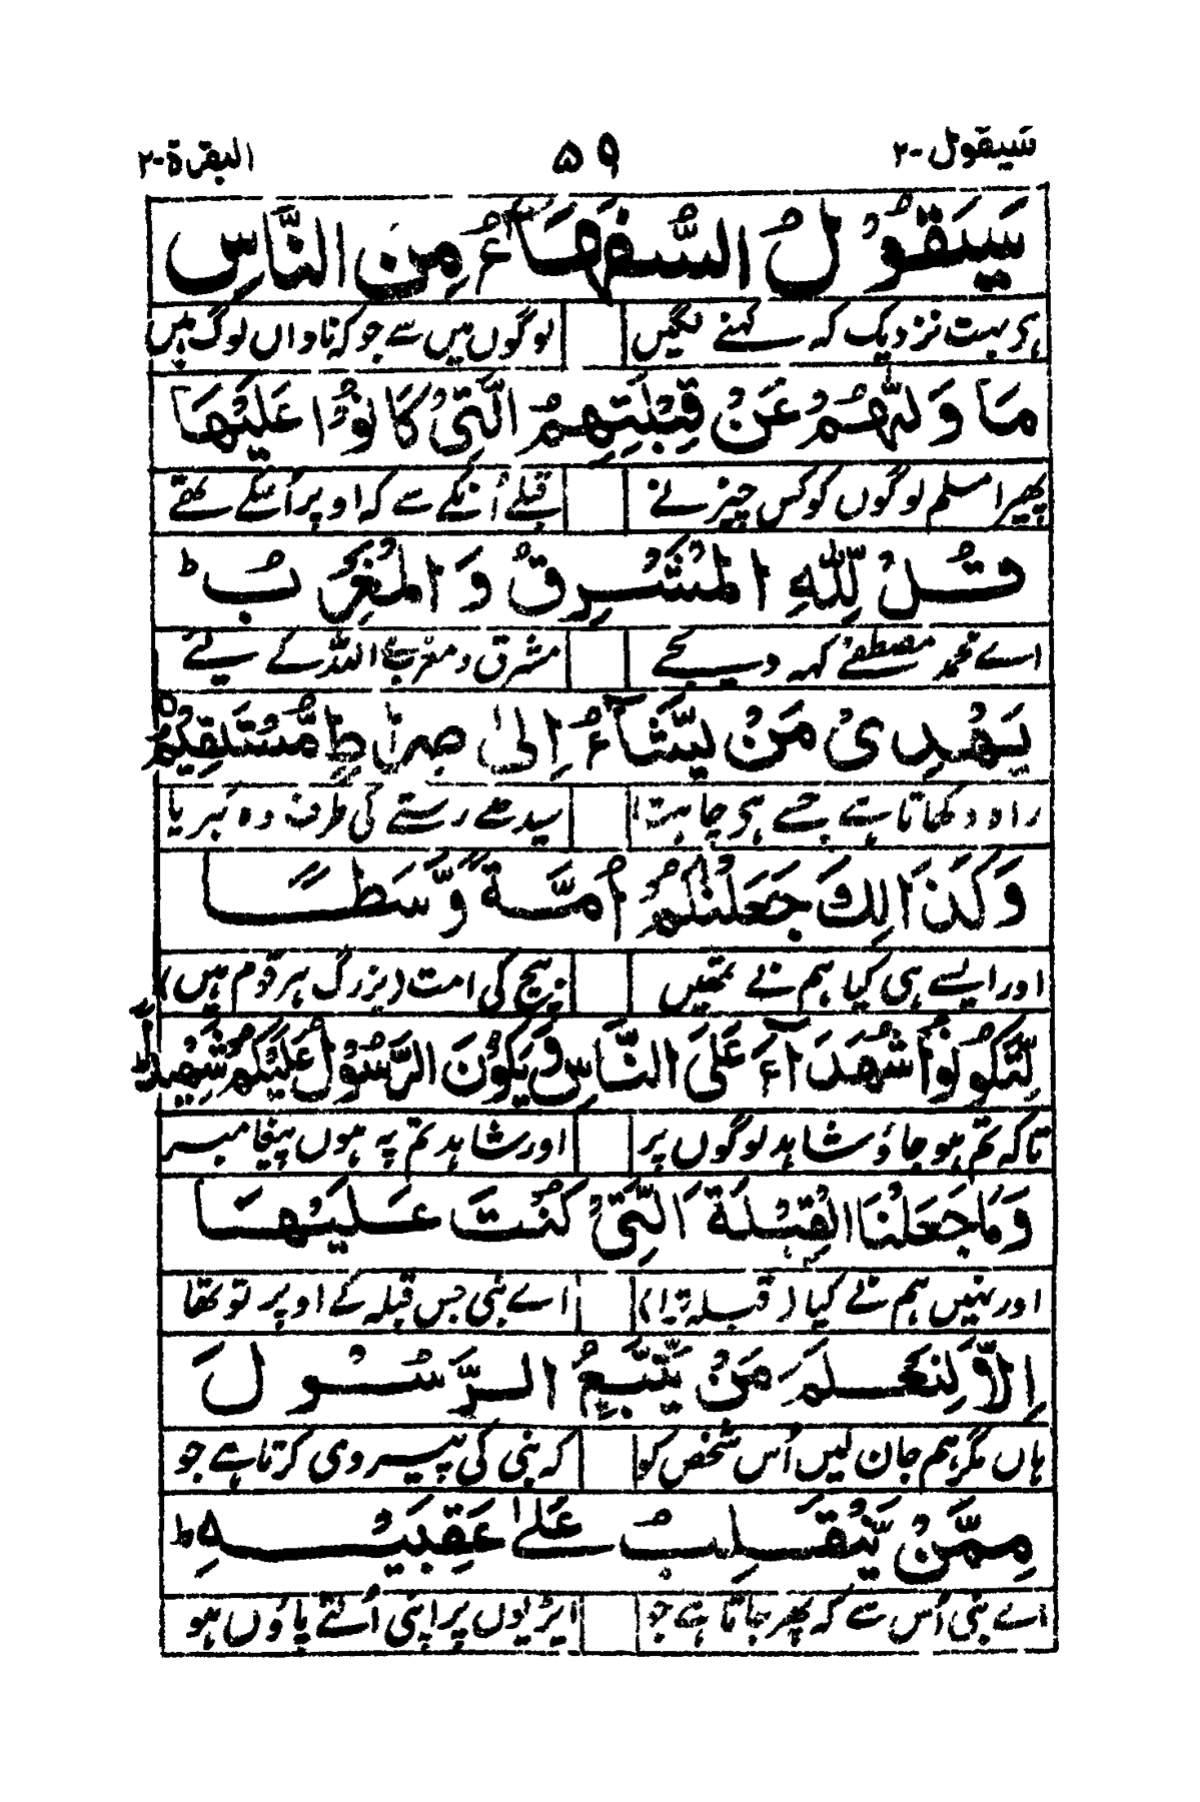 سیقول-۲ ۵۹ البقرة-۲
سَيَقُوْلُ السُّفَهَآءُ مِنَ النَّاسِ
ہر بہت نزدیک کہ سے کہنے لگیں لوگوں میں سے جو کہ ناداں لوگ ہیں
مَا وَلّٰىهُمْ عَنْ قِبْلَتِهِمُ الَّتِىْ كَانُوْا عَلَيْهَا
پھیرا مسلم لوگوں کو کس چیز نے قبلے اُنکے سے کہ اوپر اُسکے تھے
قُلْ لِّلّٰهِ الْمَشْرِقُ وَالْمَغْرِبُ ؕ
اے محمد مصطفےٰ کہہ دیجے مشرق و مغرب ہے اللہ کے لیے
يَهْدِىْ مَنْ يَّشَآءُ اِلٰى صِرَاطٍ مُّسْتَقِيْمٍ
راہ دکھاتا ہے جسے ہی چاہتا سیدھے رستے کی طرف وہ کبریا
وَكَذَالِكَ جَعَلْنٰكُمْ اُمَّةً وَّسَطًا
اور ایسے ہی کیا ہم نے تمھیں بیچ کی امت (بزرگ ہر قوم میں)
لِّتَكُوْنُوْا شُهَدَآءَ عَلَى النَّاسِ وَيَكُوْنَ الرَّسُوْلُ عَلَيْكُمْ شَهِيْدًا ؕ
تاکہ تم ہو جاؤ شاہد لوگوں پر اور شاہد تم پہ ہوں پیغامبر
وَمَا جَعَلْنَا الْقِبْلَةَ الَّتِىْ كُنْتَ عَلَيْهَا
اور نہیں ہم نے کیا (قبلہ ترا) اے نبی جس قبلہ کے اوپر تو تھا
اِلَّا لِنَعْلَمَ مَنْ يَّتَّبِعُ الرَّسُوْلَ
ہاں مگر ہم جان لیں اُس شخص کو کہ نبی کی پیروی کرتا ہے جو
مِمَّنْ يَّنْقَلِبُ عَلٰى عَقِبَيْهِ ؕ
اے نبی اُس سے کہ پھر جاتا ہے جو ایڑیوں پر اپنی اُلٹے پاؤں ہو